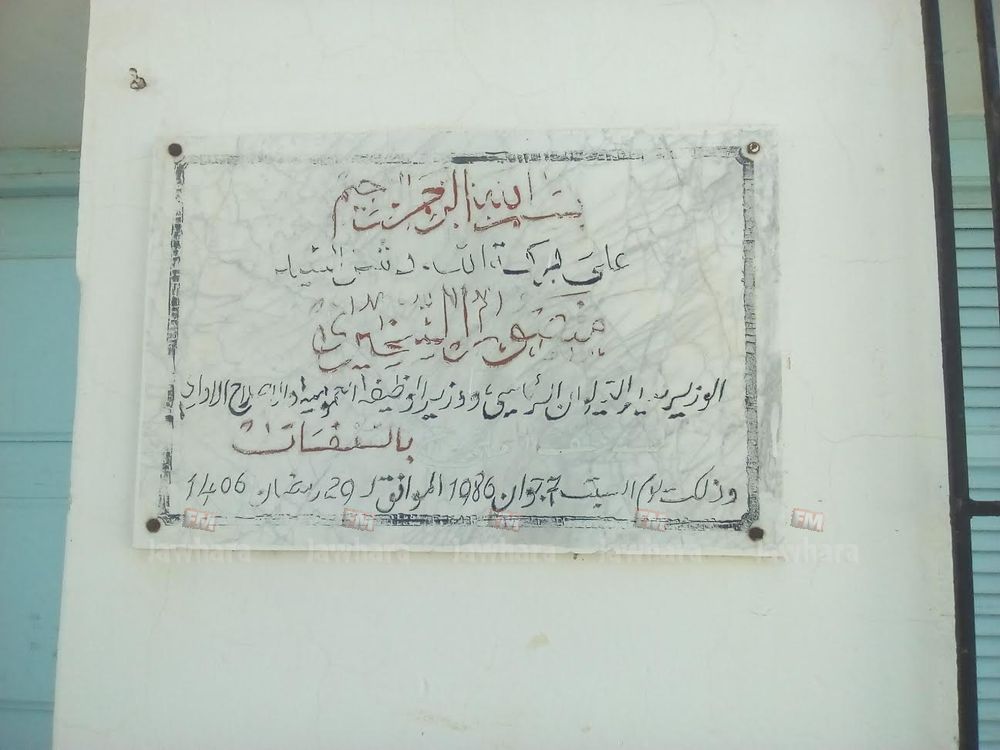 بسم الله الرحمن الرحيم
على بركة الله دشن السيد
منصور السخيري
الوزير مدير الديوان الرئاسي ووزير الوظيفة العمومية والاصلاح الاداري
بالنفقات
وذلك يوم السبت 7 جوان 1986 الموافق لـ 29 رمضان 1406
FM FM FM FM FM
Jawhara Jawhara Jawhara Jawhara Jawhara